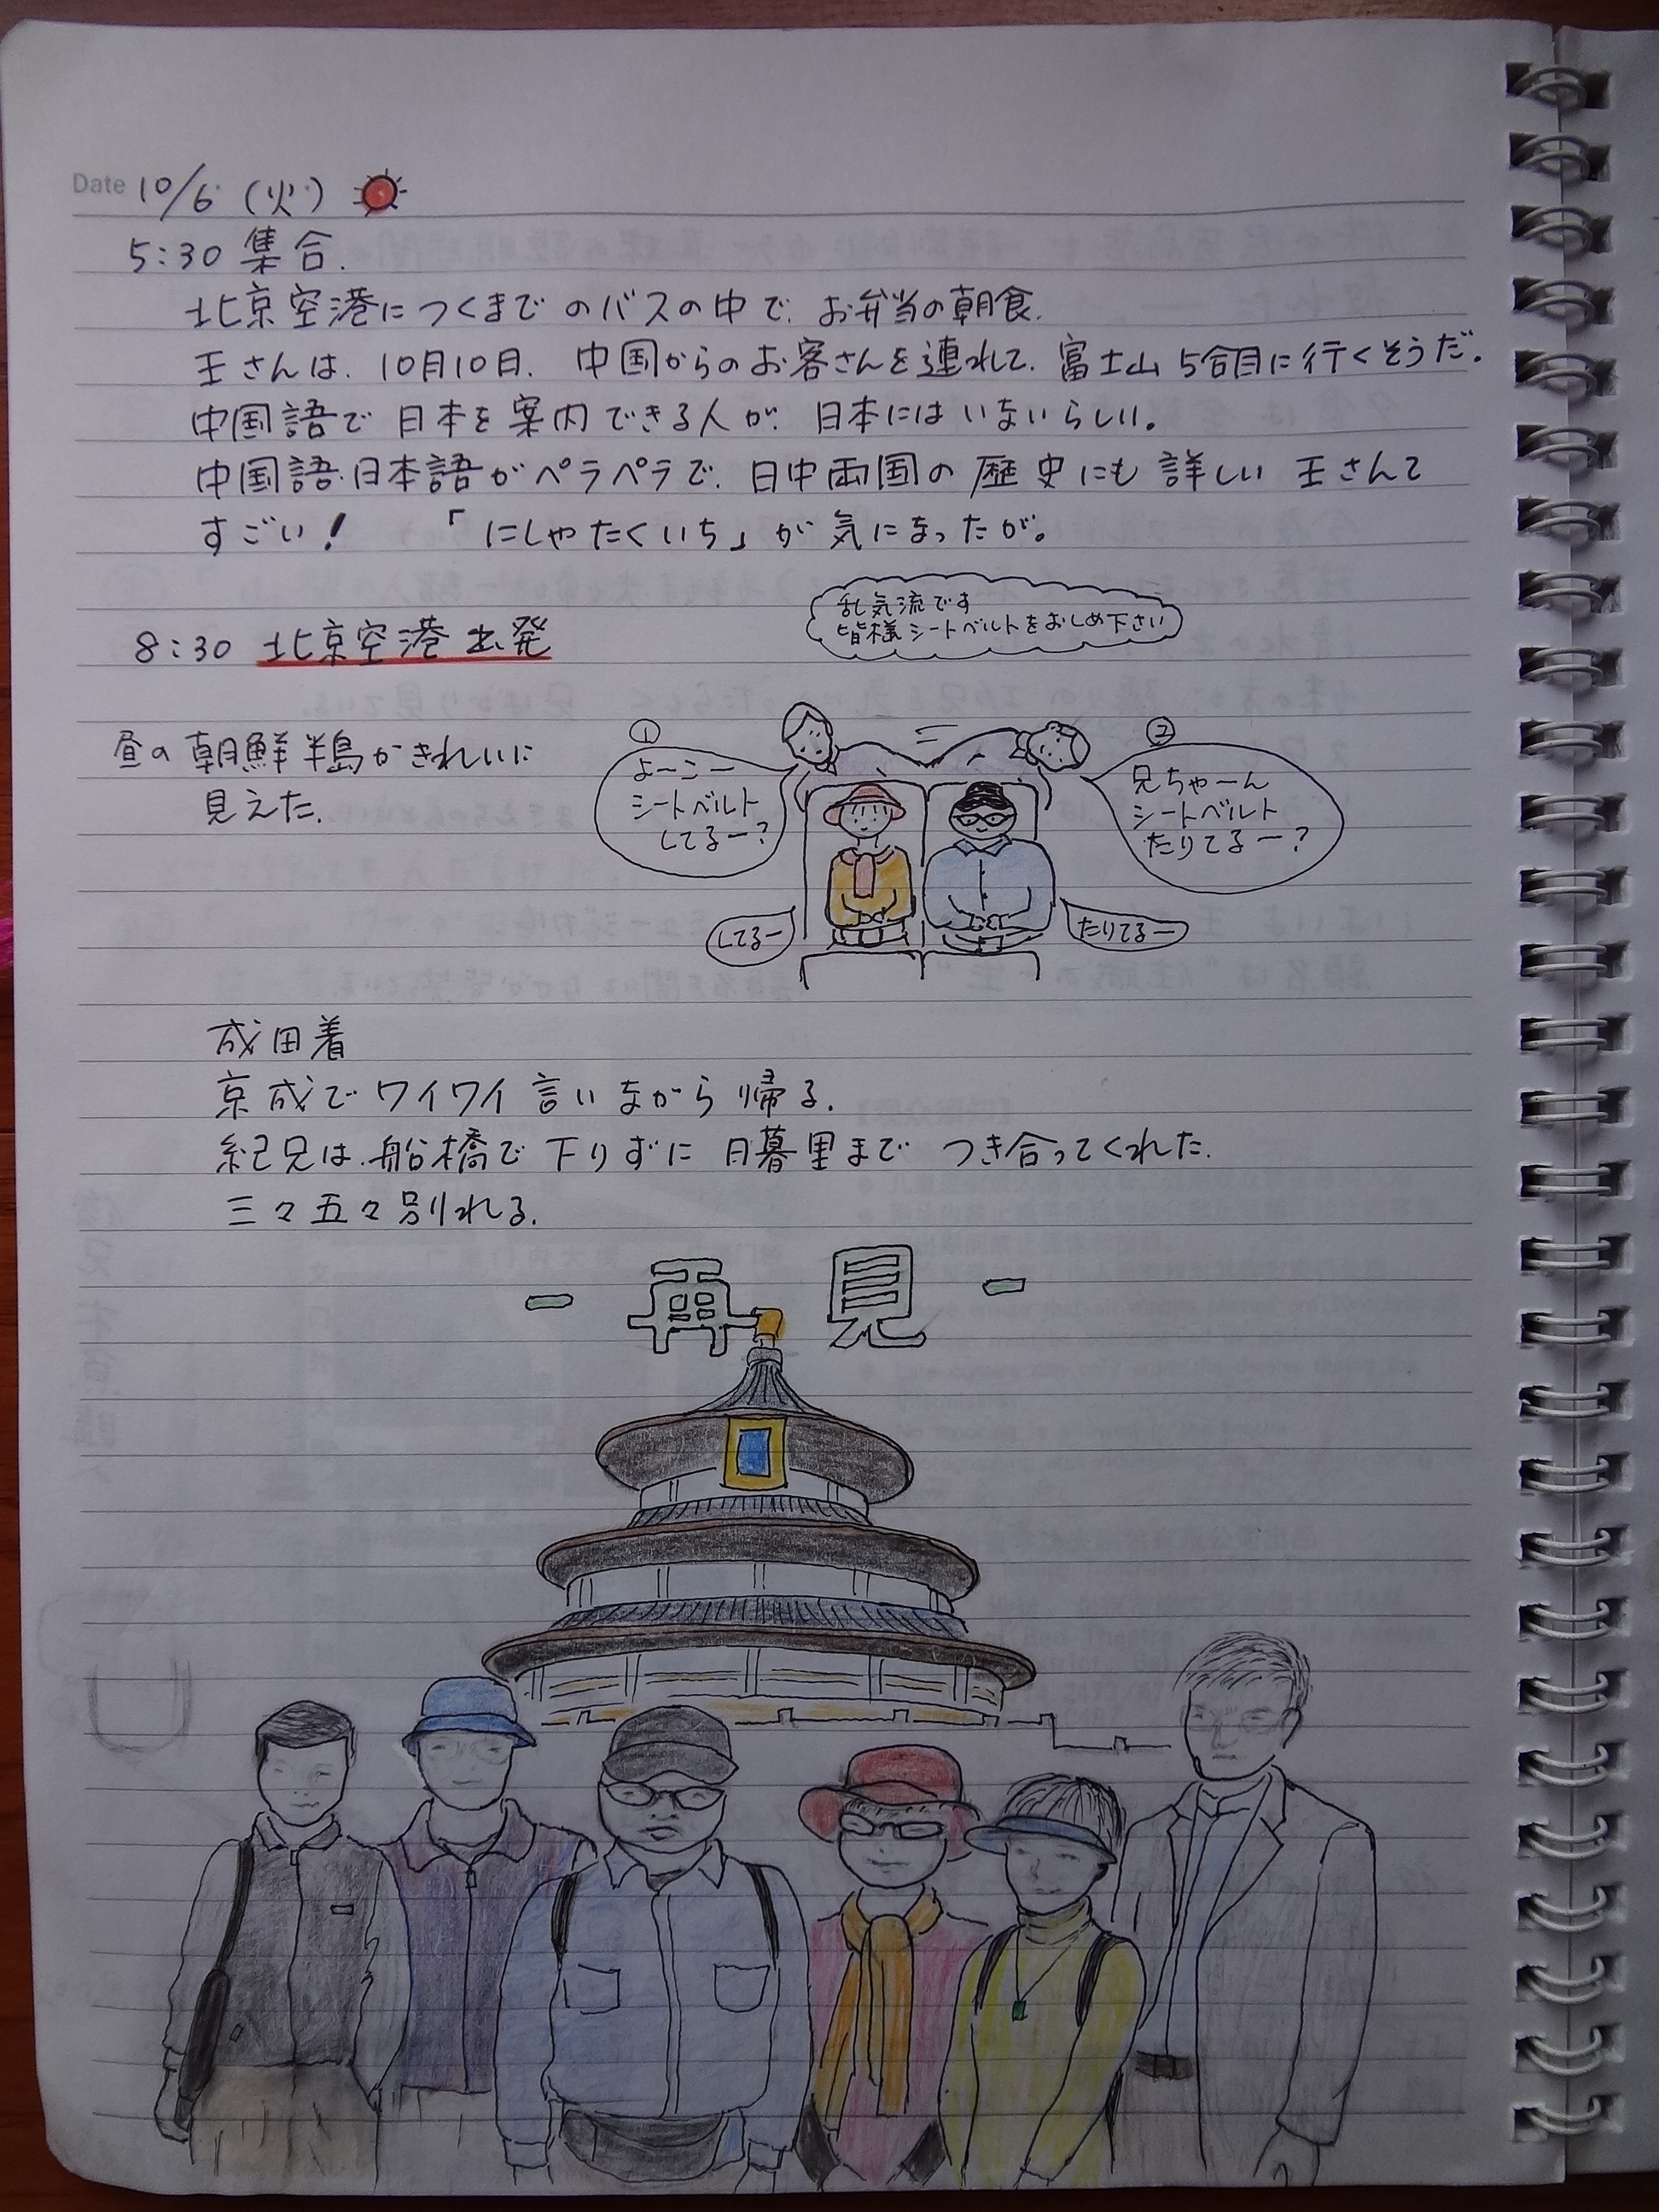 Date 10/6 (火)
5:30 集合.
北京空港につくまでのバスの中で、お弁当の朝食.
王さんは、10月10日、中国からのお客さんを連れて、富士山5合目に行くそうだ。
中国語で日本を案内できる人が、日本にはいないらしい。
中国語・日本語がペラペラで、日中両国の歴史にも詳しい王さんて
すごい! 「にしゃたくいち」が気になったが。
乱気流です
皆様シートベルトをおしめ下さい
8:30 北京空港出発
昼の朝鮮半島がきれいに
見えた.
①
よーこー
シートベルト
してるー?
②
兄ちゃーん
シートベルト
たりてるー?
してるー
たりてるー
成田着
京成でワイワイ言いながら帰る.
紀兄は、船橋で下りずに日暮里までつき合ってくれた.
三々五々別れる.
- 再見 -